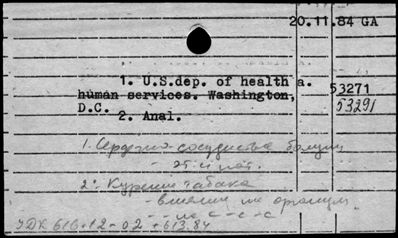 20.11.84 GA
1. U.S.dep. of health a.
53271
human services. Washington,
53291
D.C.
2. Anal.
1. Сердечно-сосудистые
2. Курение табака
- влияние на организм
УДК 616.12-02+613.84